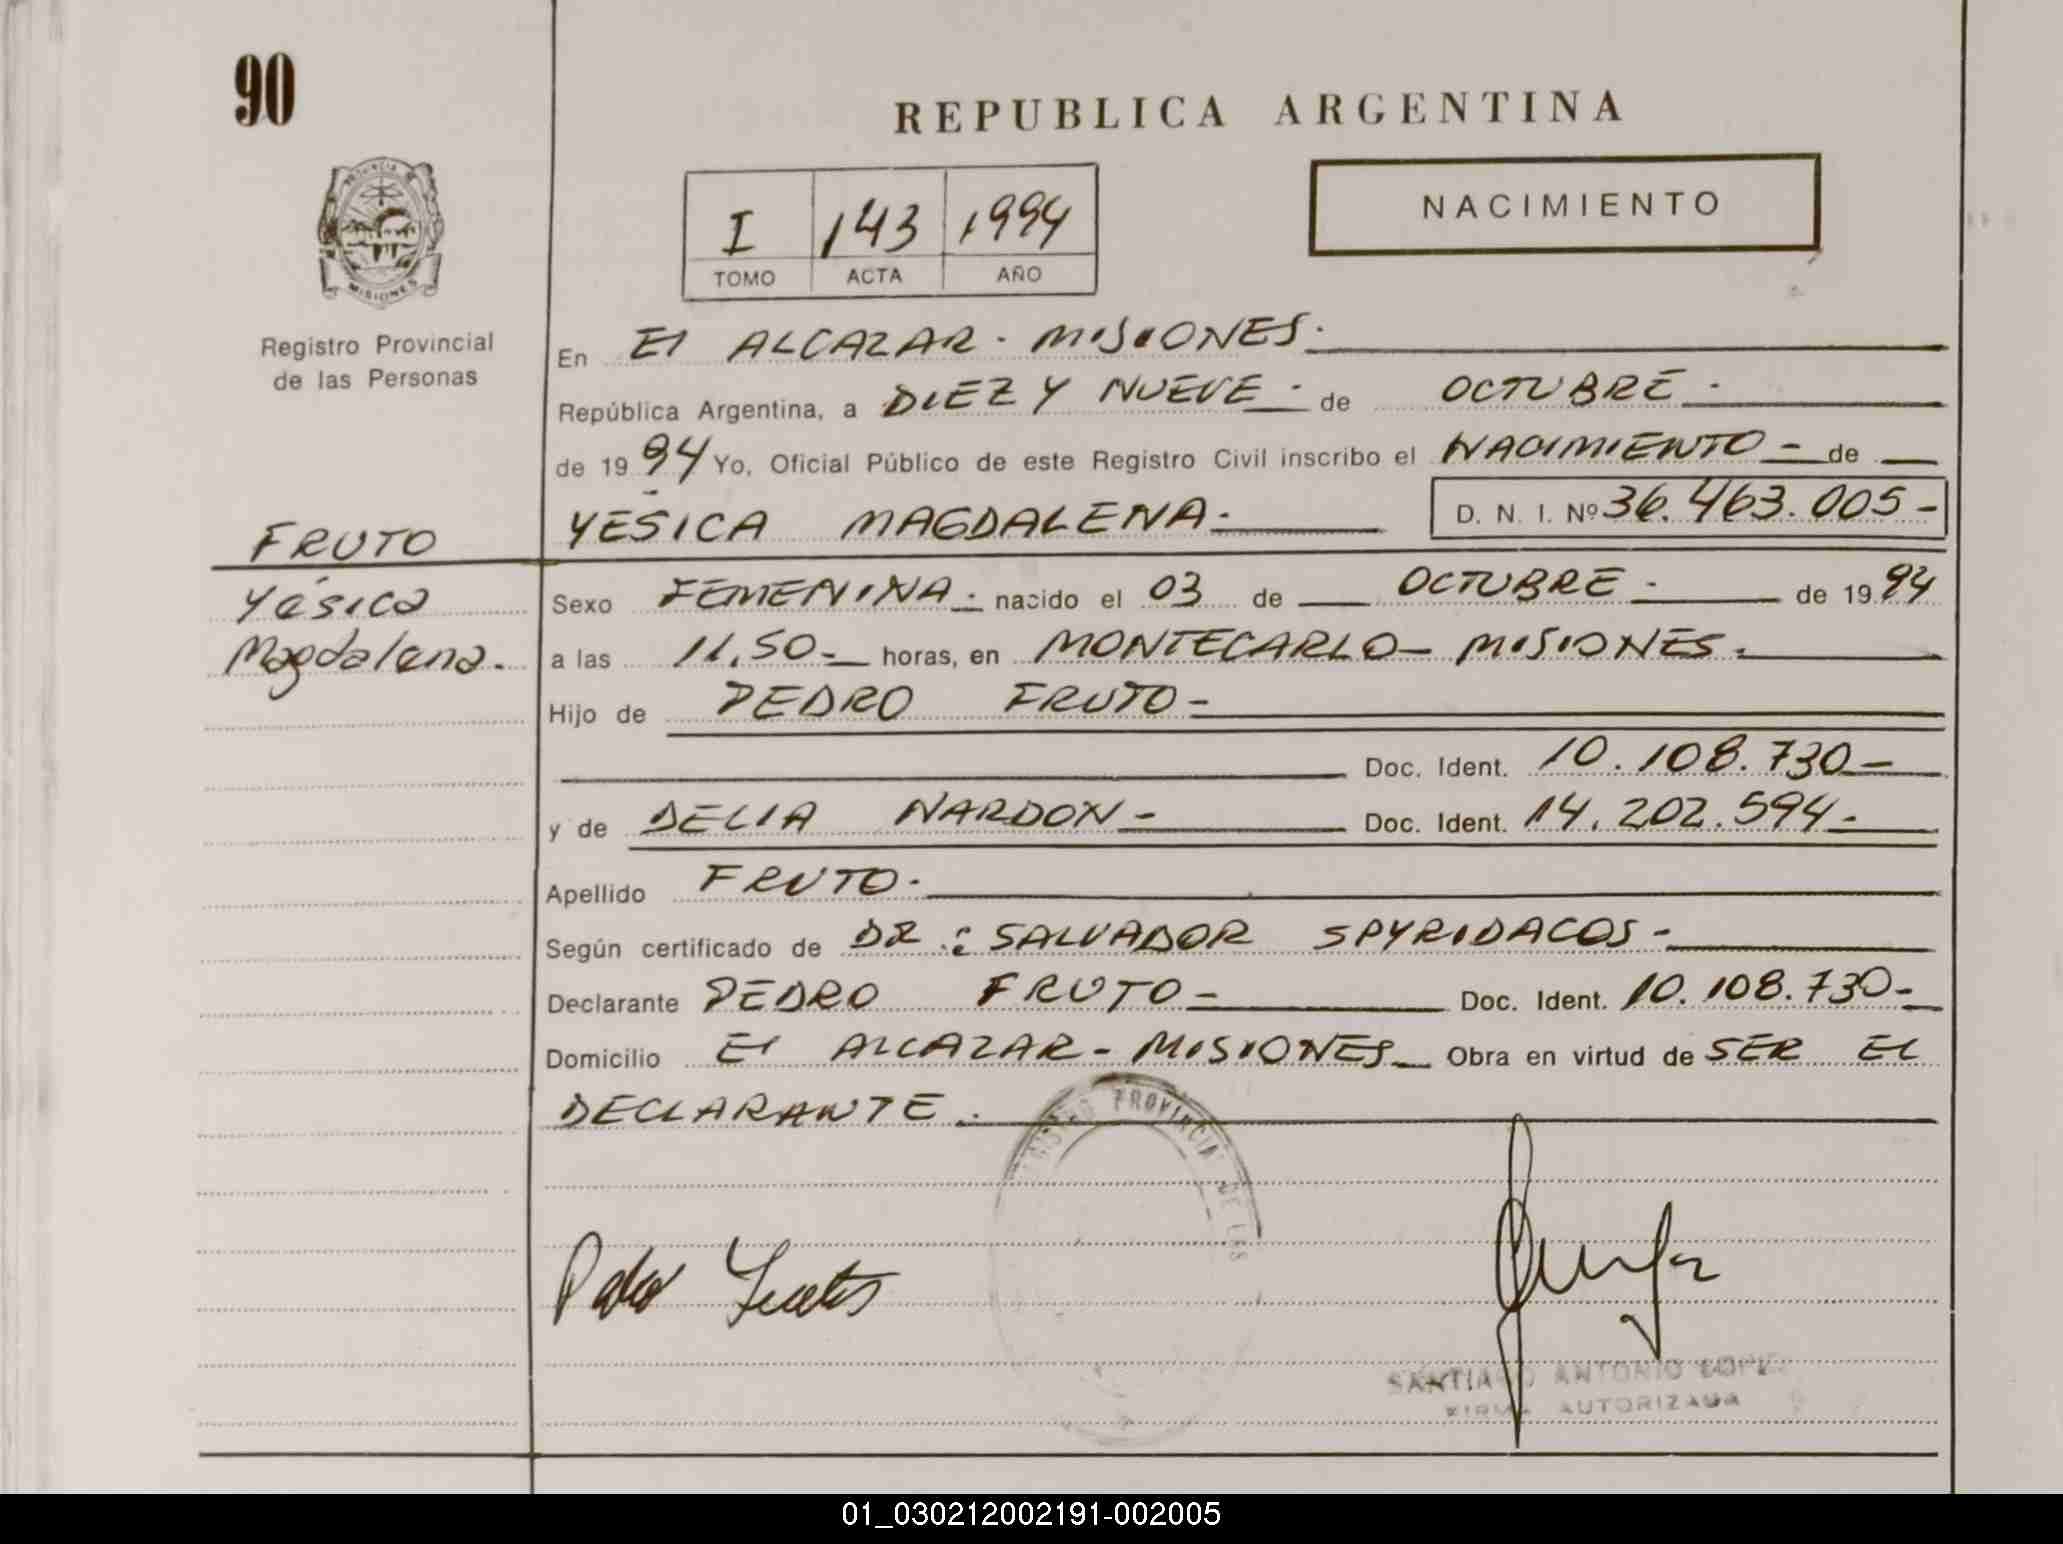 90
REPUBLICA ARGENTINA
PROVINCIA DE
MISIONES
Registro Provincial
de las Personas
I 143 1994
TOMO ACTA AÑO
NACIMIENTO
En El ALCAZAR - MISIONES.
República Argentina, a DIEZ Y NUEVE - de OCTUBRE -
de 1994 Yo, Oficial Público de este Registro Civil inscribo el NACIMIENTO - de
YÉSICA MAGDALENA - D. N. I. Nº 36.463.005-
FRUTO
Yésica
Magdalena.
Sexo FEMENINA. nacido el 03 de OCTUBRE - de 1994
a las 11.50- horas, en MONTECARLO - MISIONES.
Hijo de PEDRO FRUTO -
Doc. Ident. 10.108.730-
y de DELIA NARDON - Doc. Ident. 14.202.594-
Apellido FRUTO.
Según certificado de DR.: SALVADOR SPYRIDACOS -
Declarante PEDRO FRUTO - Doc. Ident. 10.108.730-
Domicilio El ALCAZAR - MISIONES Obra en virtud de SER EL
DECLARANTE.
PROVINCIAL DE LAS
SANTIAGO ANTONIO LOPEZ
FIRMA AUTORIZADA
01_030212002191-002005